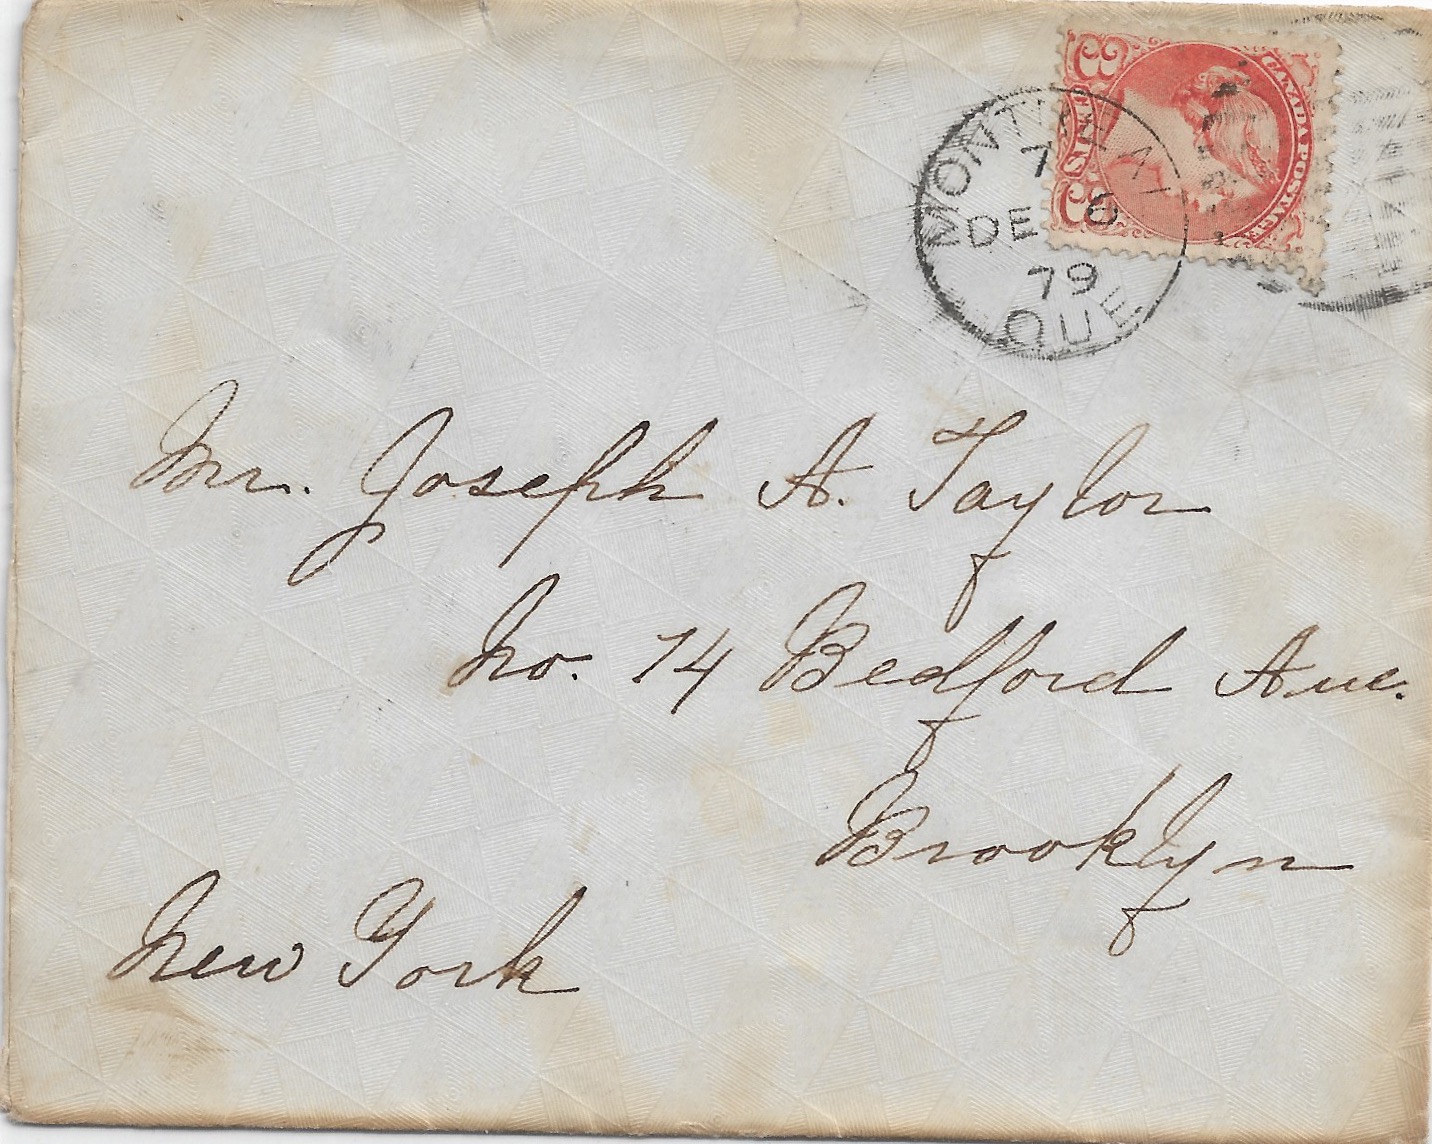 CANADA POSTAGE
3 CENTS 3
MONTREAL
7
DE 6
79
QUE
Mr. Joseph A. Taylor
No. 74 Bedford Ave.
Brooklyn
New York